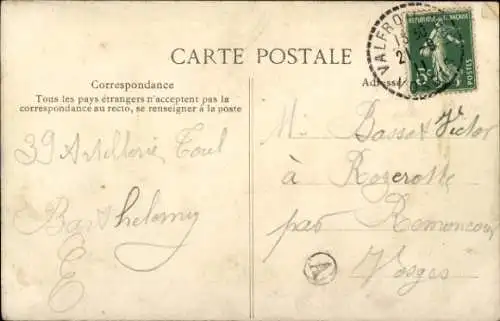 CARTE POSTALE
Correspondance
Tous les pays étrangers n'acceptent pas la
correspondance au recto, se renseigner à la poste
39 Artillerie Toul
Barthelemy
E
Adresse
VALFRO
REPUBLIQUE FRANÇAISE
5c
POSTES
M. Basset Victor
à Rozerotte
par Remoncourt
Vosges
A